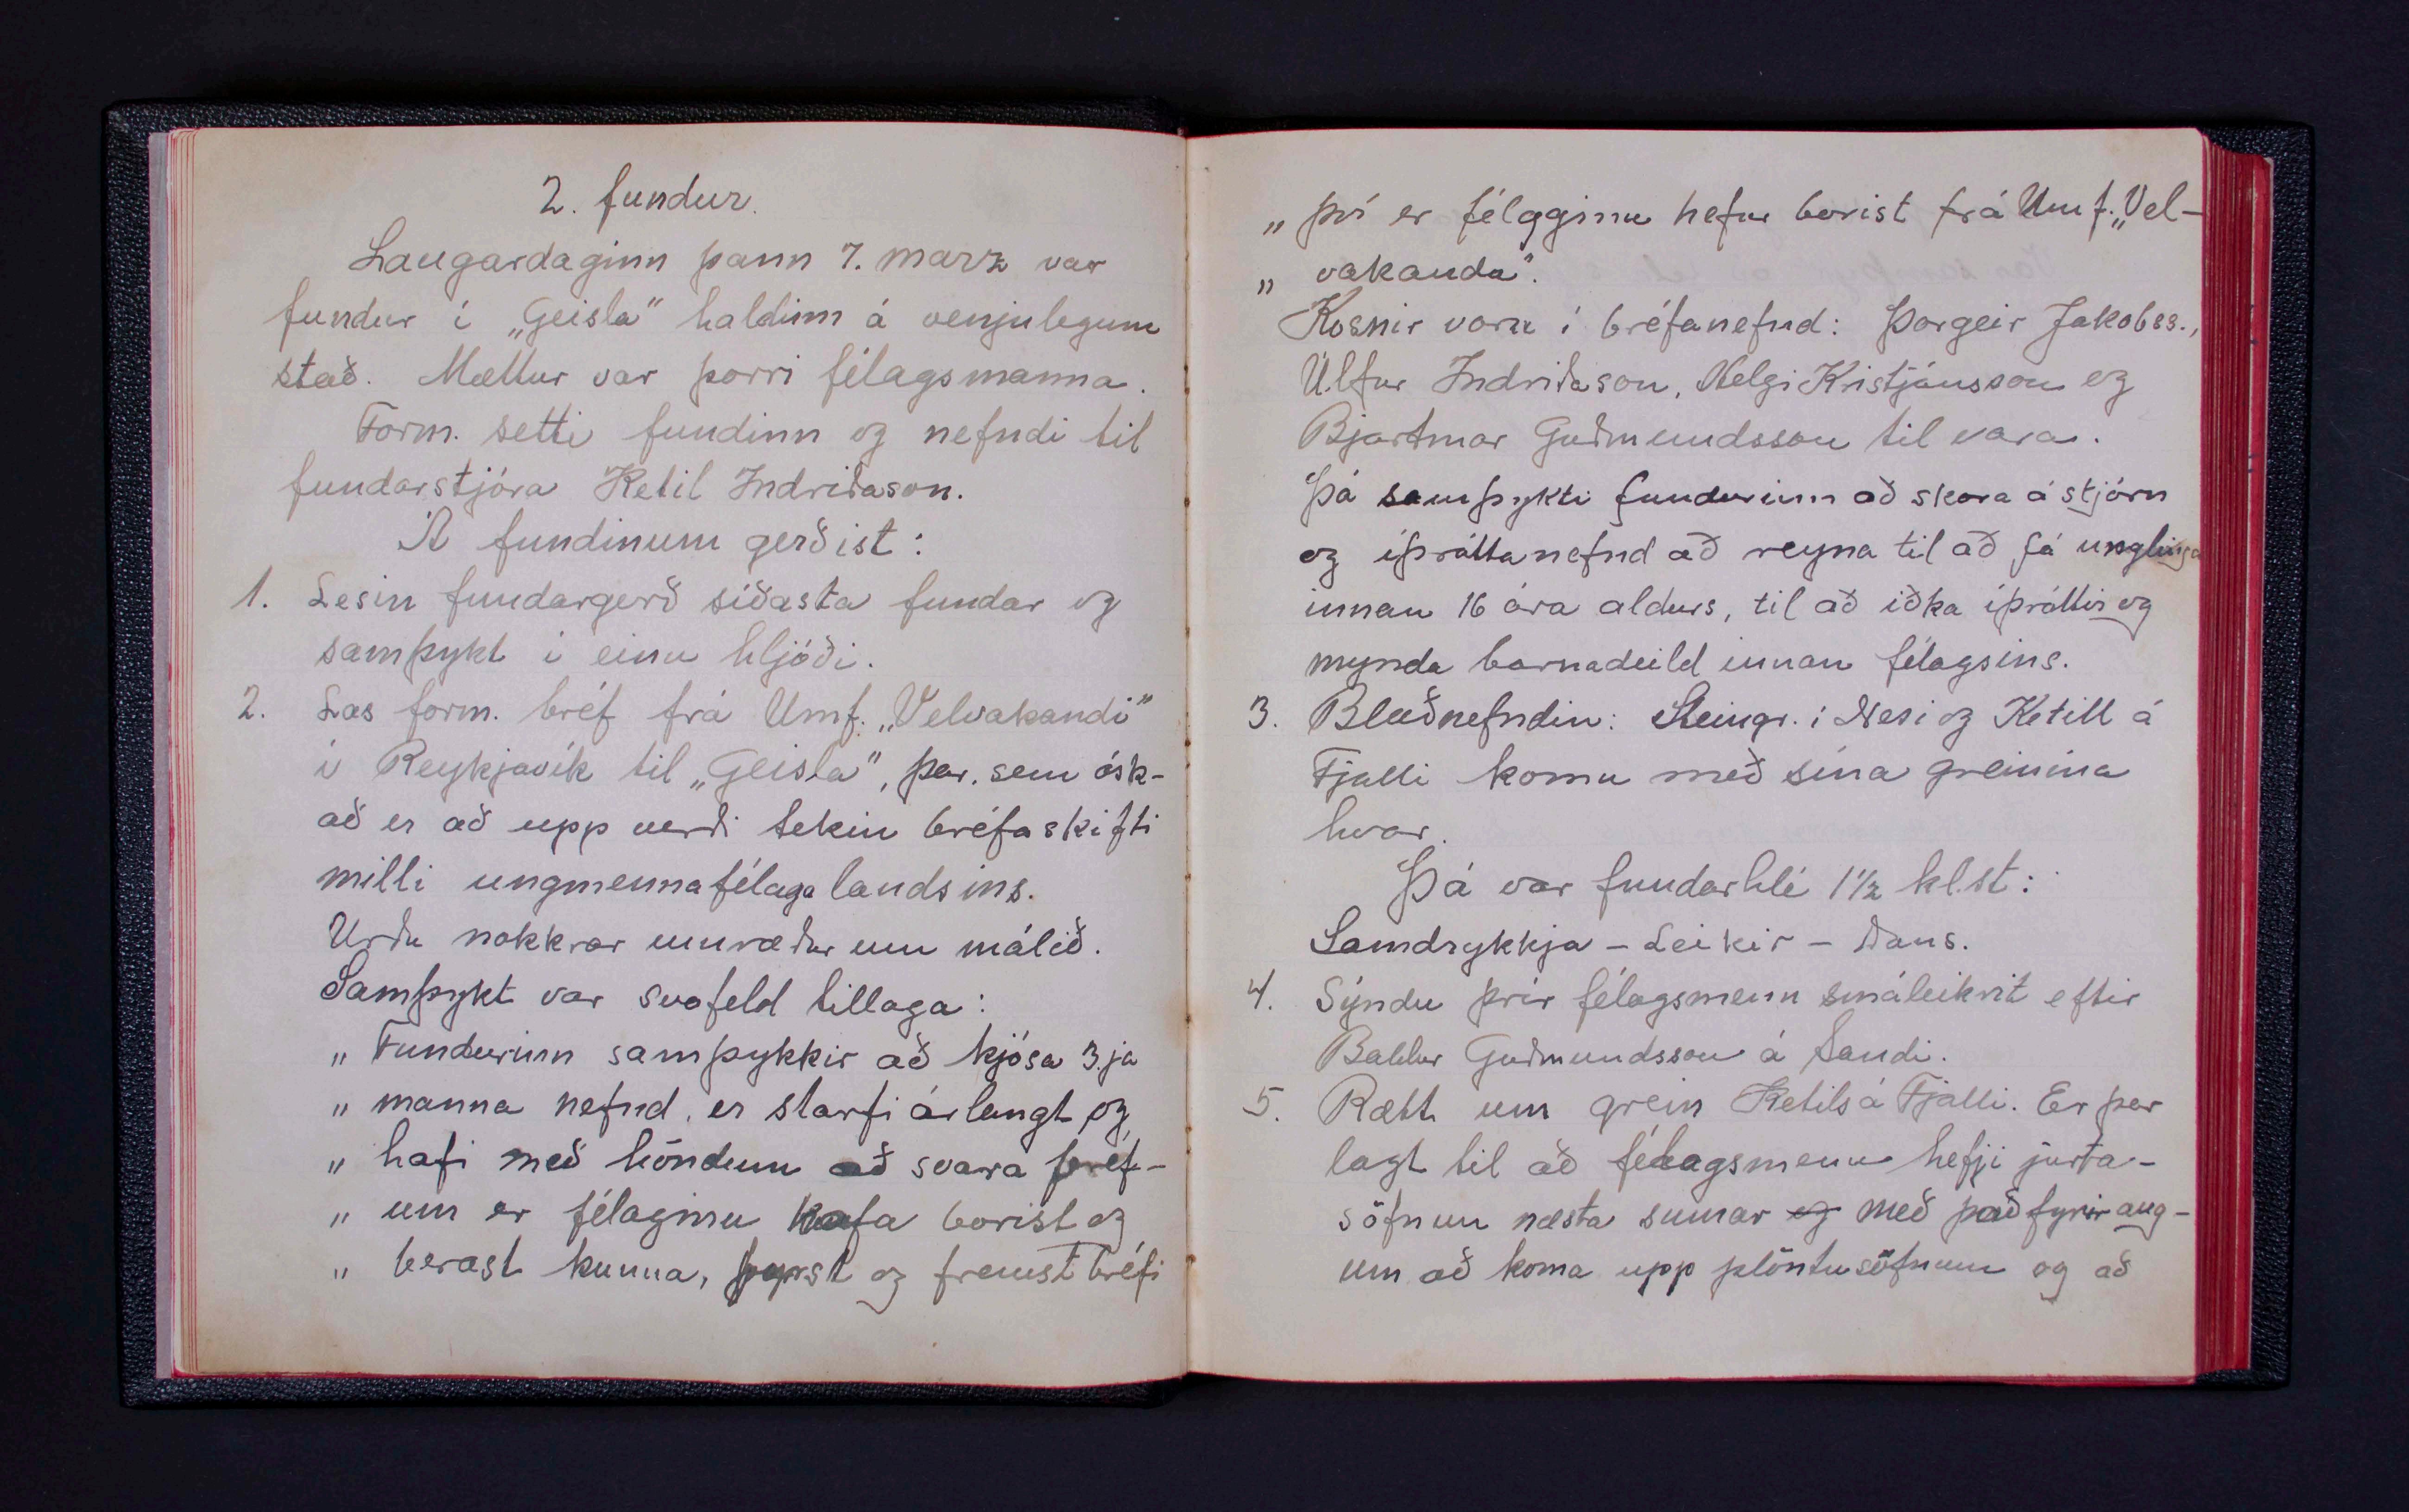 2. fundur.
Laugardaginn þann 7. marz var
fundur í „Geisla" haldinn á venjulegum
stað. Mættur var þorri félagsmanna.
Form. setti fundinn og nefndi til
fundarstjóra Ketil Indriðason.
Á fundinum gerðist:
1. Lesin fundargerð síðasta fundar og
samþykt í einu hljóði.
2. Las form. bréf frá Umf. „Velvakandi"
í Reykjavík til „Geisla", þar, sem ósk-
að er að upp verði tekin bréfaskifti
milli ungmennafélaga landsins.
Urðu nokkrar umræður um málið.
Samþykt var svofeld tillaga:
„ Fundurinn samþykkir að kjósa 3.ja
„ manna nefnd, er starfi árlangt og
„ hafi með höndum að svara bréf-
„ um er félaginu hafa borist og
„ berast kunna, fyrst og fremst bréfi
„ því er félaginu hefur borist frá Umf. „Vel-
„ vakanda".
Kosnir voru í bréfanefnd: Þorgeir Jakobss.,
Úlfur Indriðason, Helgi Kristjánsson og
Bjartmar Guðmundsson til vara.
Þá samþykti fundurinn að skora á stjórn
og íþróttanefnd að reyna til að fá unglinga
innan 16 ára aldurs, til að iðka íþróttir og
mynda barnadeild innan félagsins.
3. Blaðnefndin: Steingr. í Nesi og Ketill á
Fjalli komu með sína greinina
hvor.
Þá var fundarhlé 1½ kl.st:
Samdrykkja - Leikir - Dans.
4. Sýndu þrír félagsmenn smáleikrit eftir
Baldur Guðmundsson á Sandi.
5. Rætt um grein Ketils á Fjalli. Er þar
lagt til að félagsmenn hefji jurta-
söfnun næsta sumar og með það fyrir aug-
um að koma upp plöntusöfnum og að